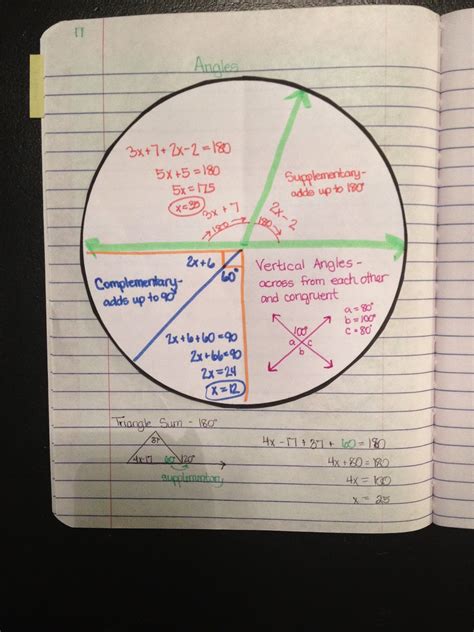 Angles
3x+7+2x-2=180
5x+5=180
5x=175
x=35
Supplementary-
adds up to 180°
3x+7
2x-2
180
180
2x+6
60°
Complementary-
adds up to 90°
2x+6+60=90
2x+66=90
2x=24
x=12
Vertical Angles-
across from each other
and congruent
a=80°
b=100°
c=80°
100°
a c
b
Triangle Sum - 180°
37
4x-17 60° 120°
supplementary
4x-17+37+60=180
4x+80=180
4x=100
x=25